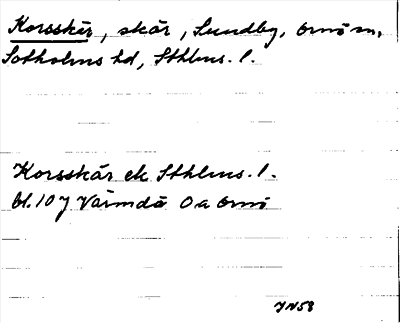 Korsskär, skär, Sundby, Ornö sn,
Sotholms hd, Sthlms. l.
Korsskär ek Sthlms. l.
bl. 107 Värmdö Oa Ornö
JN58